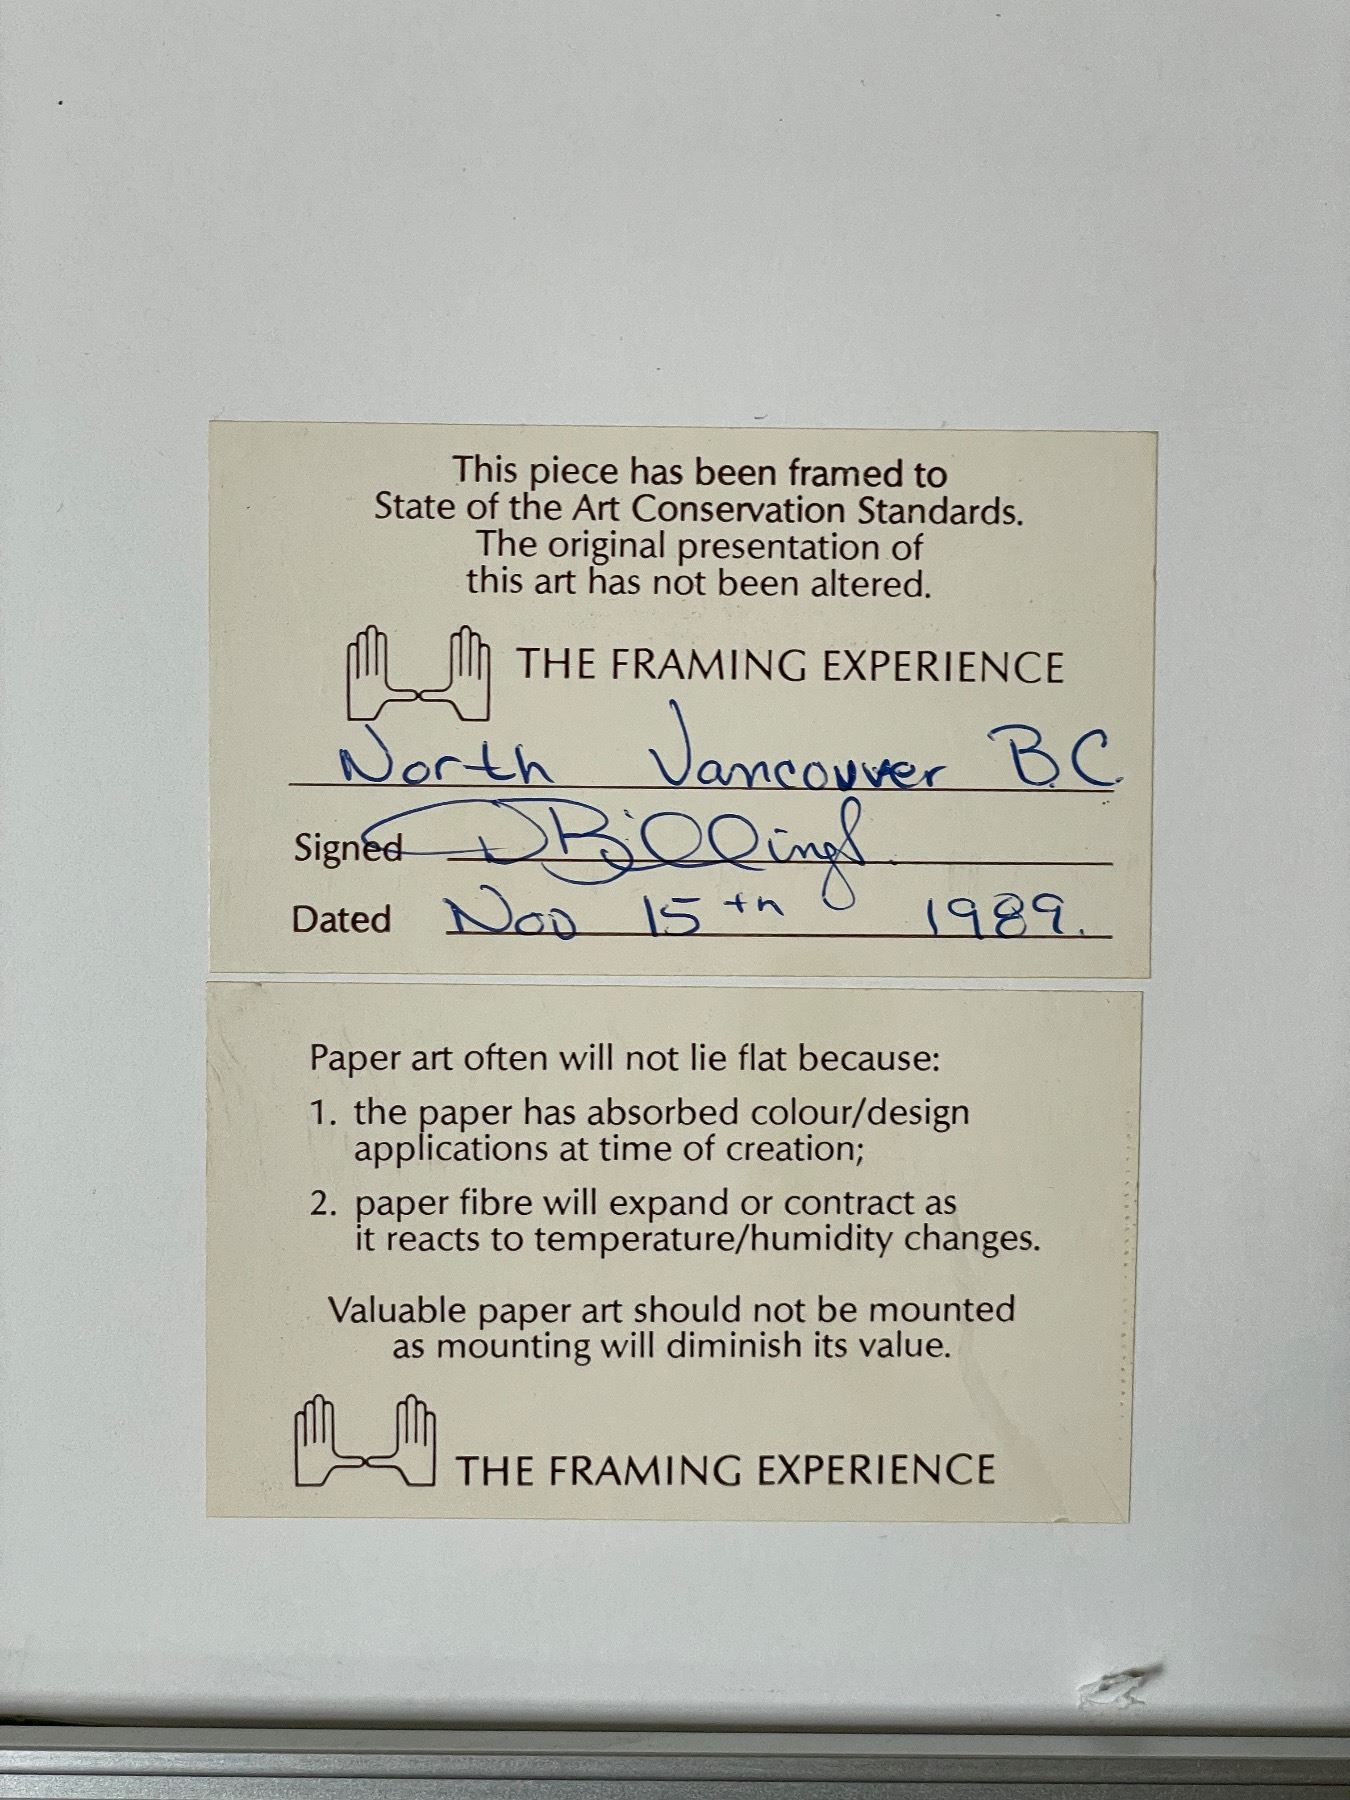 This piece has been framed to
State of the Art Conservation Standards.
The original presentation of
this art has not been altered.
THE FRAMING EXPERIENCE
North Vancouver B.C.
Signed DBillings
Dated Nov 15th 1989.
Paper art often will not lie flat because:
1. the paper has absorbed colour/design
applications at time of creation;
2. paper fibre will expand or contract as
it reacts to temperature/humidity changes.
Valuable paper art should not be mounted
as mounting will diminish its value.
THE FRAMING EXPERIENCE